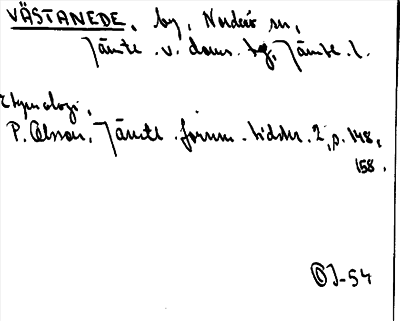 VÄSTANEDE, by, Norderö sn,
Jämte. v. doms. tg, Jämte. l.
Etymologi,
P. Olsson, Jämtl. fornm. tidskr. 2, p. 148,
158.
OJ-54